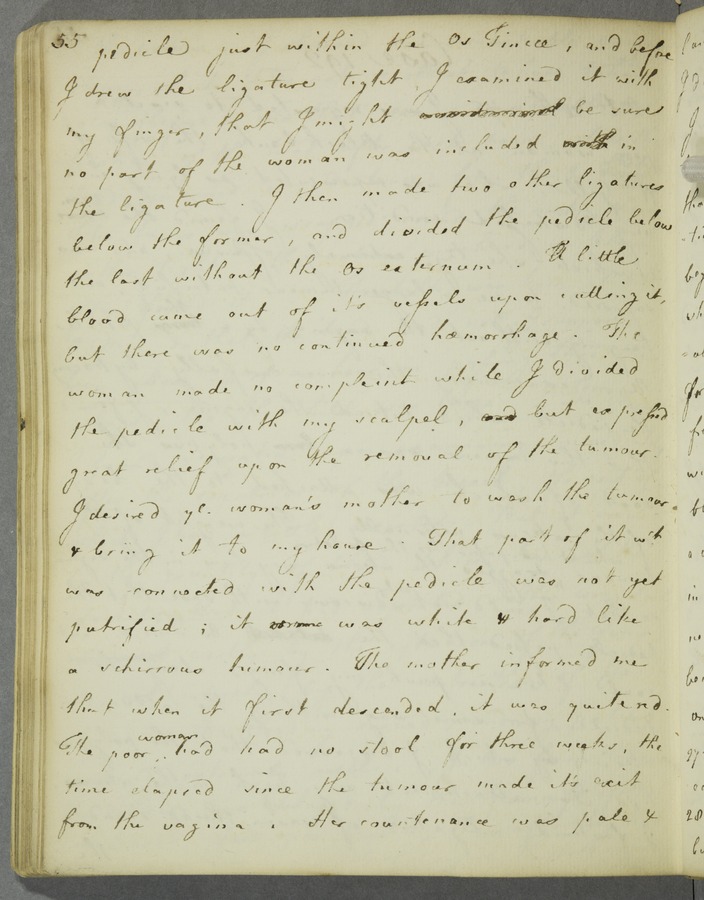 55
pedicle just within the Os Tincæ, and before
I drew the ligature tight I examined it with
my finger, that I might be sure
no part of the woman was included with in
the ligature. I then made two other ligatures
below the former, and divided the pedicle below
the last without the os externum. A little
blood came out of it's vessels upon cutting it,
but there was no continued hæmorrhage. The
woman made no complaint while I divided
the pedicle with my scalpel, and but expressed
great relief upon the removal of the tumour.
I desired ye. woman's mother to wash the tumour
& bring it to my house. That part of it wt
was connected with the pedicle was not yet
putrified; it was white & hard like
a schirrous tumour. The mother informed me
that when it first descended, it was quite red.
The poor woman had had no stool for three weeks, the
time elapsed since the tumour made it's exit
from the vagina. Her countenance was pale &